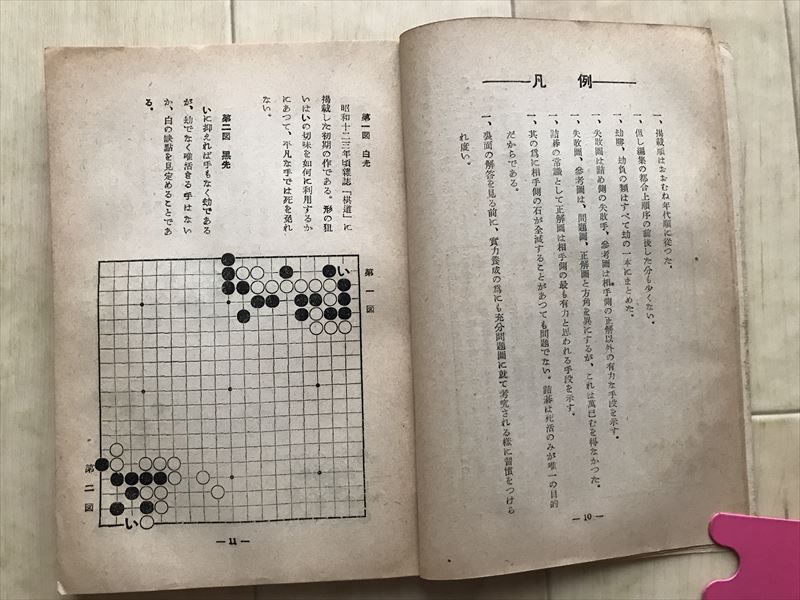 凡例
一、掲載順はおおむね年代順に從つた。
一、但し編集の都合上順序の前後した分も少くない。
一、劫勝、劫負の類はすべて劫の一本にまとめた。
一、失敗圖は詰め側の失敗手、參考圖は相手側の正解以外の有力な手段を示す。
一、失敗圖、參考圖は、問題圖、正解圖と方角を異にするが、これは萬已むを得なかつた。
一、詰碁の常識として正解圖は相手側の最も有力と思われる手段を示す。
一、其の爲に相手側の石が全滅することがあつても問題でない。詰碁は死活のみが唯一の目的
だからである。
一、裏面の解答を見る前に、實力養成の爲にも充分問題圖に就て考究される樣に習慣をつけら
れ度い。
— 10 —
第一図 白先
昭和十二三年頃雜誌「棋道」に
掲載した初期の作である。形の狙
いはいの切味を如何に利用するか
にあつて、平凡な手では死を免れ
ない。
第二図 黒先
いに抑えれば手もなく劫である
が、劫でなく唯活きる手はない
か、白の缺點を見定めることであ
る。
第一図
い
第二図
い
— 11 —